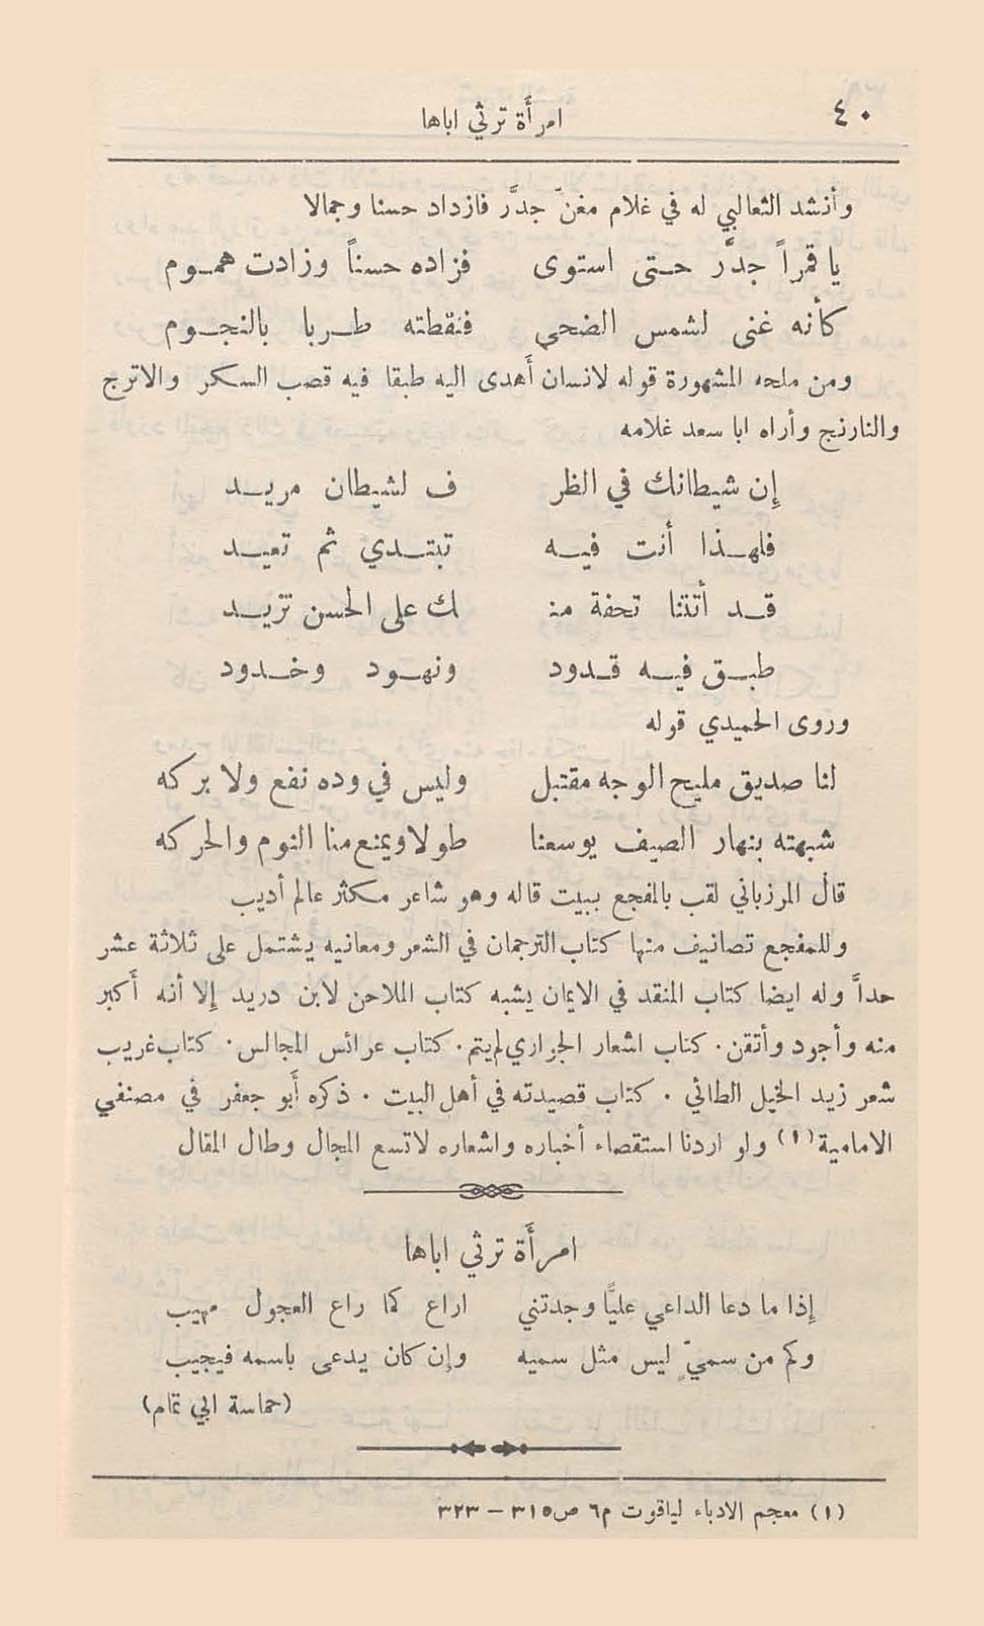 ٤٠
امرأة ترثي اباها
وأنشد الثعالبي له في غلام مغنّ جدَّر فازداد حسنا وجمالا
يا قمراً جدَّر حتى استوى فزاده حسناً وزادت هموم
كأنه غنى لشمس الضحى فنقطته طربا بالنجوم
ومن ملحه المشهورة قوله لانسان أهدى اليه طبقا فيه قصب السكر والاترج
والنارنج وأراه ابا سعد غلامه
إن شيطانك في الظر ف لشيطان مريد
فلهذا أنت فيه تبتدي ثم تعيد
قد أتتنا تحفة منـ ك على الحسن تزيد
طبق فيه قدود ونهود وخدود
وروى الحميدي قوله
لنا صديق مليح الوجه مقتبل وليس في وده نفع ولا بركه
شبهته بنهار الصيف يوسعنا طولا ويمنع منا النوم والحركه
قال المرزباني لقب بالمفجع ببيت قاله وهو شاعر مكثر عالم أديب
وللمفجع تصانيف منها كتاب الترجمان في الشعر ومعانيه يشتمل على ثلاثة عشر
حداً وله ايضا كتاب المنقد في الايمان يشبه كتاب الملاحن لابن دريد إلا أنه أكبر
منه وأجود وأتقن . كتاب اشعار الجواري لم يتم . كتاب عرائس المجالس . كتاب غريب
شعر زيد الخيل الطائي . كتاب قصيدته في أهل البيت . ذكره أبو جعفر في مصنفي
الامامية (١) ولو اردنا استقصاء أخباره واشعاره لاتسع المجال وطال المقال
امرأة ترثي اباها
إذا ما دعا الداعي عليًا وجدتني اراع كما راع العجول مهيب
وكم من سميّ ليس مثل سميه وإن كان يدعى باسمه فيجيب
(حماسة ابي تمام)
(١) معجم الادباء لياقوت م٦ ص٣١٥ – ٣٢٣